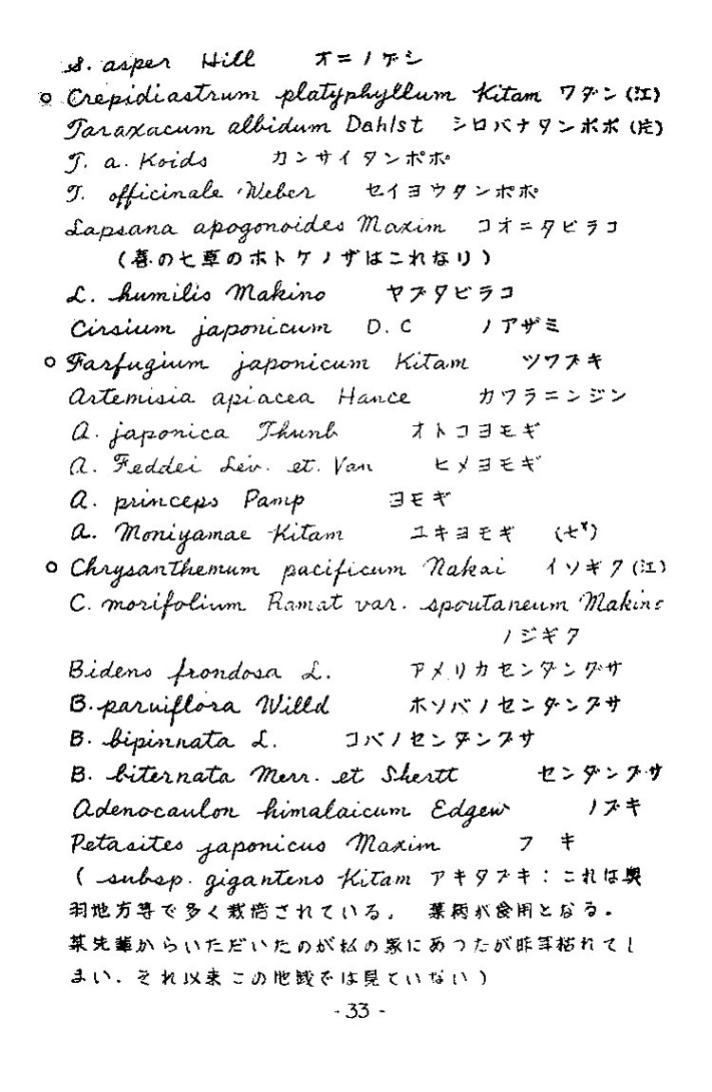 S. asper Hill オニノゲシ
○ Crepidiastrum platyphyllum Kitam ワダン (江)
Taraxacum albidum Dahlst シロバナタンポポ (片)
T. a. Koids カンサイタンポポ
T. officinale Weber セイヨウタンポポ
Lapsana apogonoides Maxim コオニタビラコ
(春の七草のホトケノザはこれなり)
L. humilis Makino ヤブタビラコ
Cirsium japonicum D.C ノアザミ
○ Farfugium japonicum Kitam ツワブキ
Artemisia apiacea Hance カワラニンジン
A. japonica Thunb オトコヨモギ
A. Feddei Lév. et. Van ヒメヨモギ
A. princeps Pamp ヨモギ
A. Moniyamae Kitam ユキヨモギ (七*)
○ Chrysanthemum pacificum Nakai イソギク (江)
C. morifolium Ramat var. spoutaneum Makino
ノジギク
Bidens frondosa L. アメリカセンダングサ
B. parviflora Willd ホソバノセンダングサ
B. bipinnata L. コバノセンダングサ
B. biternata Merr. et Shertt センダングサ
Adenocaulon himalaicum Edgew ノブキ
Petasites japonicus Maxim フ キ
( subsp. gigantens Kitam アキタブキ : これは奥
羽地方等で多く栽培されている。 葉柄が食用となる。
某先輩からいただいたのが私の家にあったが昨年枯れてし
まい、それ以来この地域では見ていない)
- 33 -